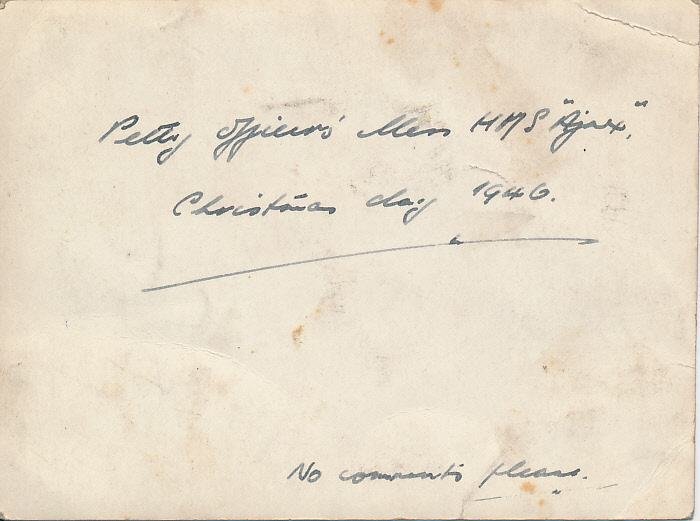 Petty Officers' Mess HMS "Ajax",
Christmas day 1946.
No comments please.